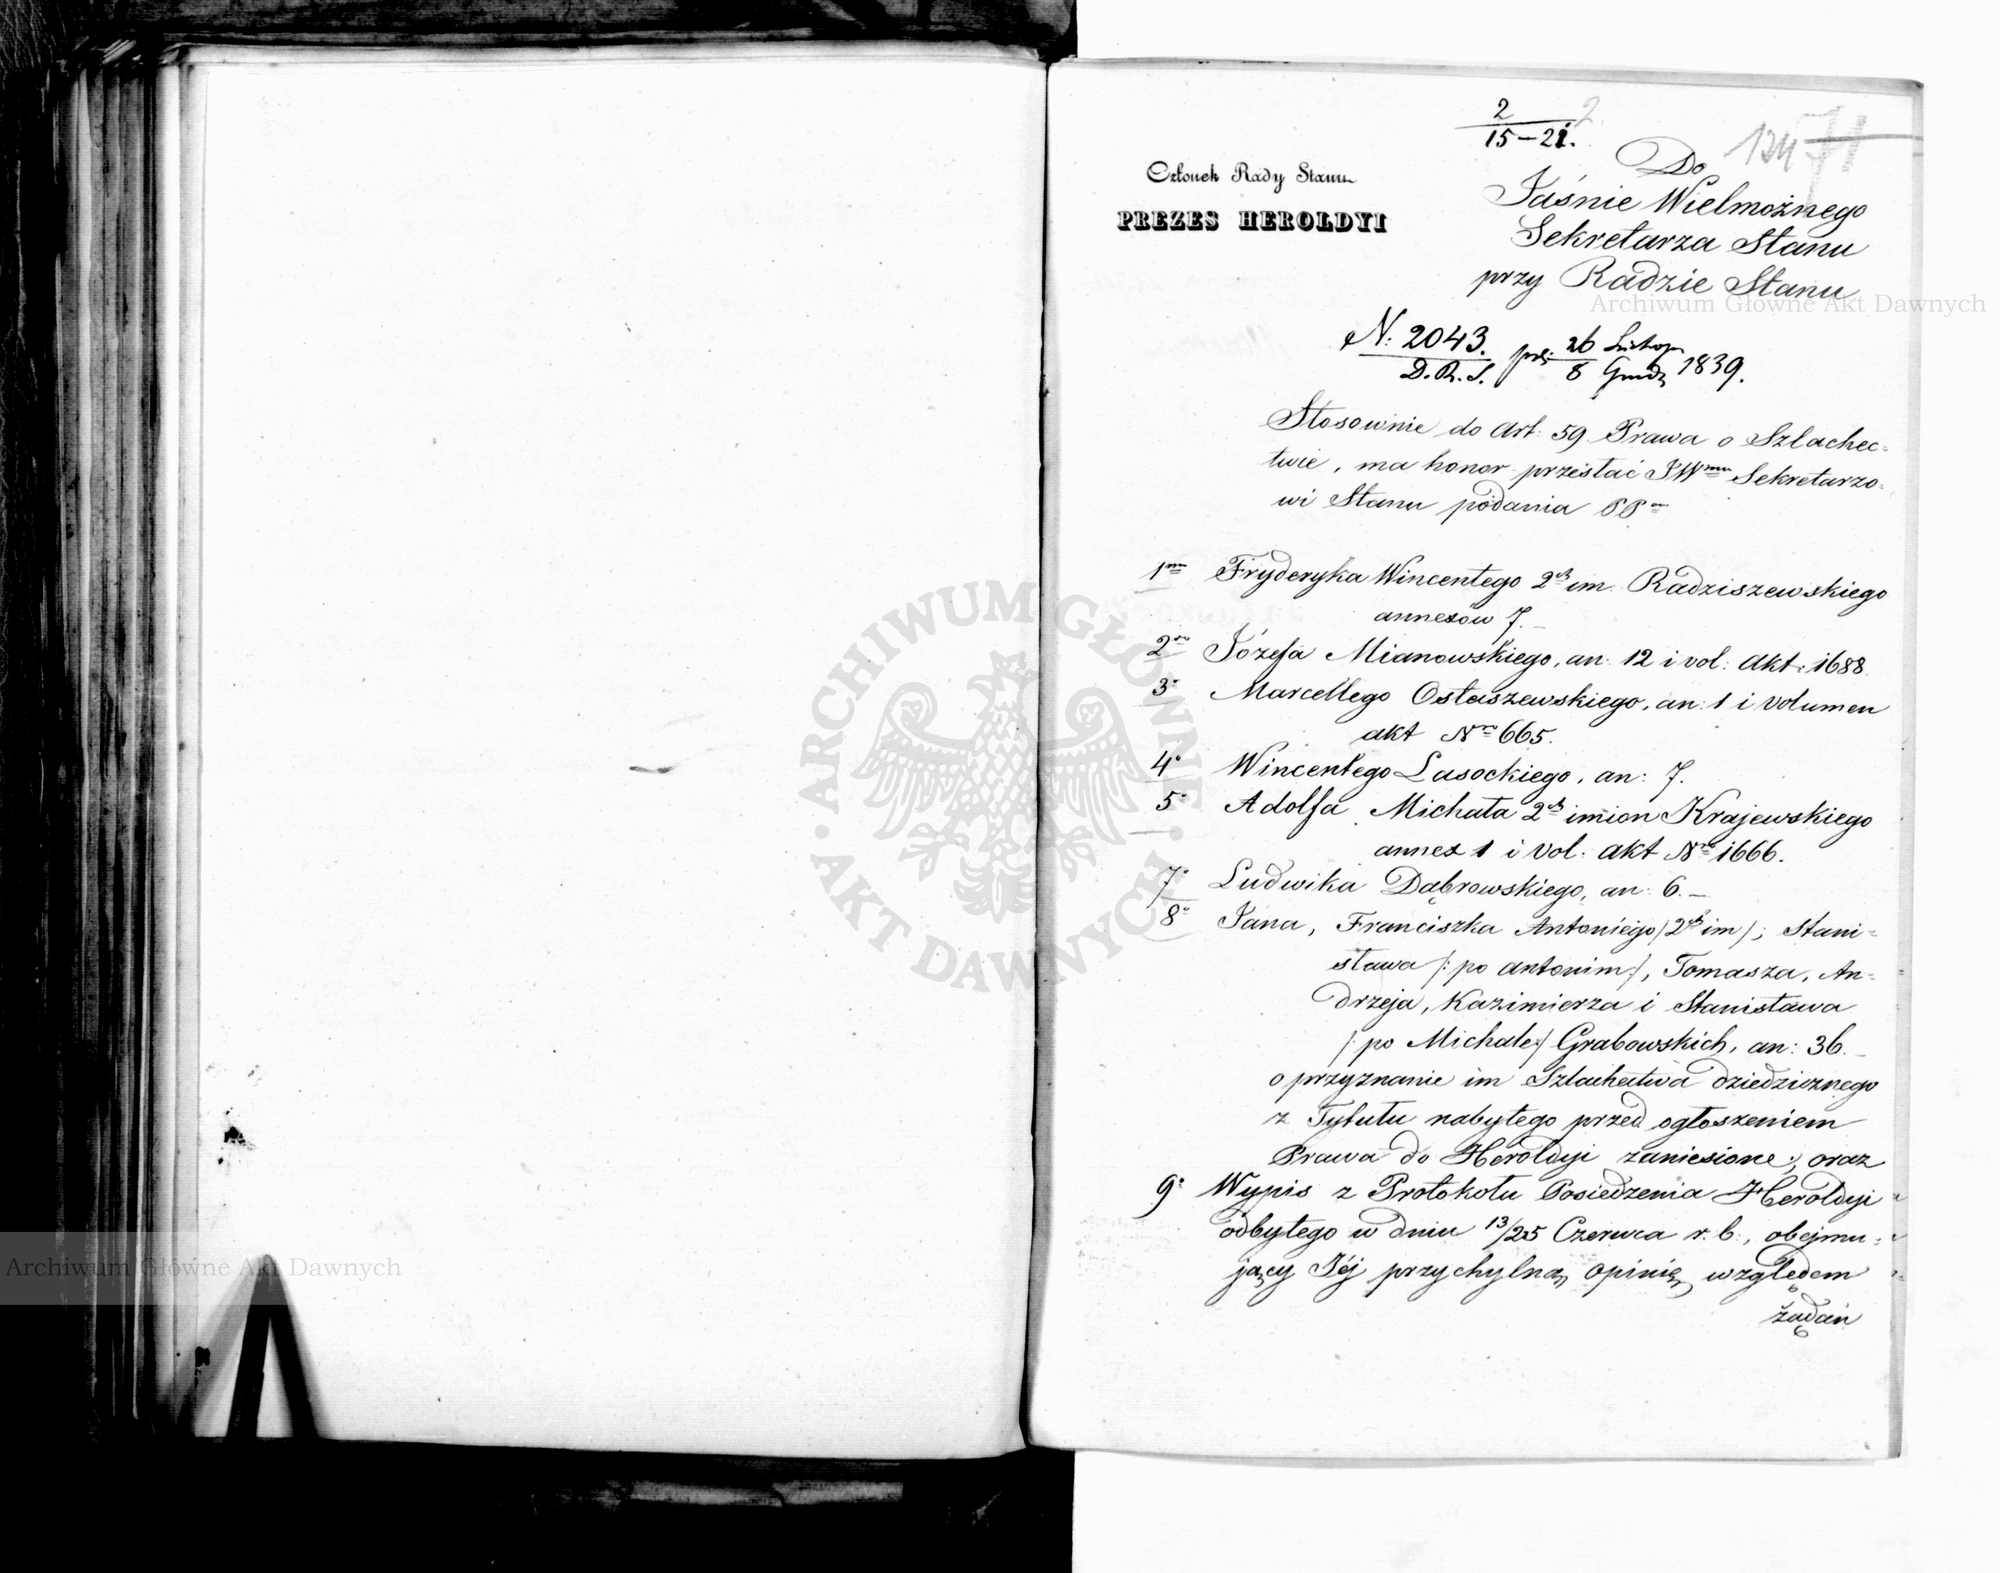 2
15–21.
2
Do
Człouek Rady Stanu
PREZES HEROLDYI
Jaśnie Wielmożnego
Sekretarza Stanu
przy Radzie Stanu
Archiwum Główne Akt Dawnych
N: 2043. 26 Listop
D.R.S. 8 Grudz 1839.
Stosownie do Art: 59 Prawa o Szlachec=
twie, ma honor przesłać JWmu Sekretarzo=
wi Stanu podania PP
1mo Fryderyka Wincentego 2ch im. Radziszewskiego
annexów 7.–
2do Józefa Mianowskiego, an: 12 i vol: Akt: 1688
3o Marcellego Ostaszewskiego, an: 1 i volumen
akt Nro 665.
4o Wincentego Lasockiego, an: 7.
5o Adolfa Michała 2ch imion Krajewskiego
annex 1 i vol: akt Nro 1666.
7o Ludwika Dąbrowskiego, an: 6.–
8o Jana, Franciszka Antoniego /2ch im/; Stani=
sława /: po antonim:/, Tomasza, An=
drzeja, Kazimierza i Stanisława
/: po Michale:/ Grabowskich, an: 36.–
o przyznanie im Szlachectwa dziedzicznego
z Tytułu nabytego przed ogłoszeniem
Prawa do Heroldyi zaniesione; oraz
9o Wypis z Protokołu Posiedzenia Heroldyi
odbytego w dniu 13/25 Czerwca r. b., obejmu=
jący Jéj przychylną opinię względem
żądań
ARCHIWUM GŁÓWNE
AKT DAWNYCH
Archiwum Główne Akt Dawnych